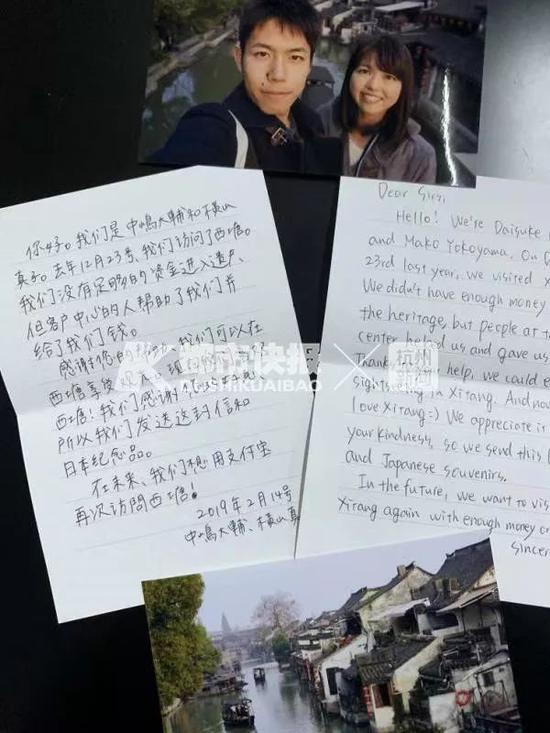 你好。我们是中嶋大輔和横山
真子。去年12月23号、我们访问了西塘。
我们没有足够的资金进入遗产、
但客户中心的人帮助了我们并
给了我们钱。
感谢您的帮助、我们可以在
西塘享受观光。现在
西塘！我们感谢
所以我们发送这封信和
日本纪念品。
在未来、我们想用支付宝
再次访問西塘！
2019年2月14号
中嶋大輔、横山真
Dear Sirs,
Hello! We're Daisuke
and Mako Yokoyama. On
23rd last year, we visited
We didn't have enough money
the heritage, but people at
center helped us and gave us
Thank your help, we could
sightseeing in Xitang. And now
love Xitang=) We appreciate it
your kindness, so we send this
and Japanese souvenirs.
In the future, we want to
Xitang again with enough money or
都市快报 杭州
DUSHIKUAIBAO